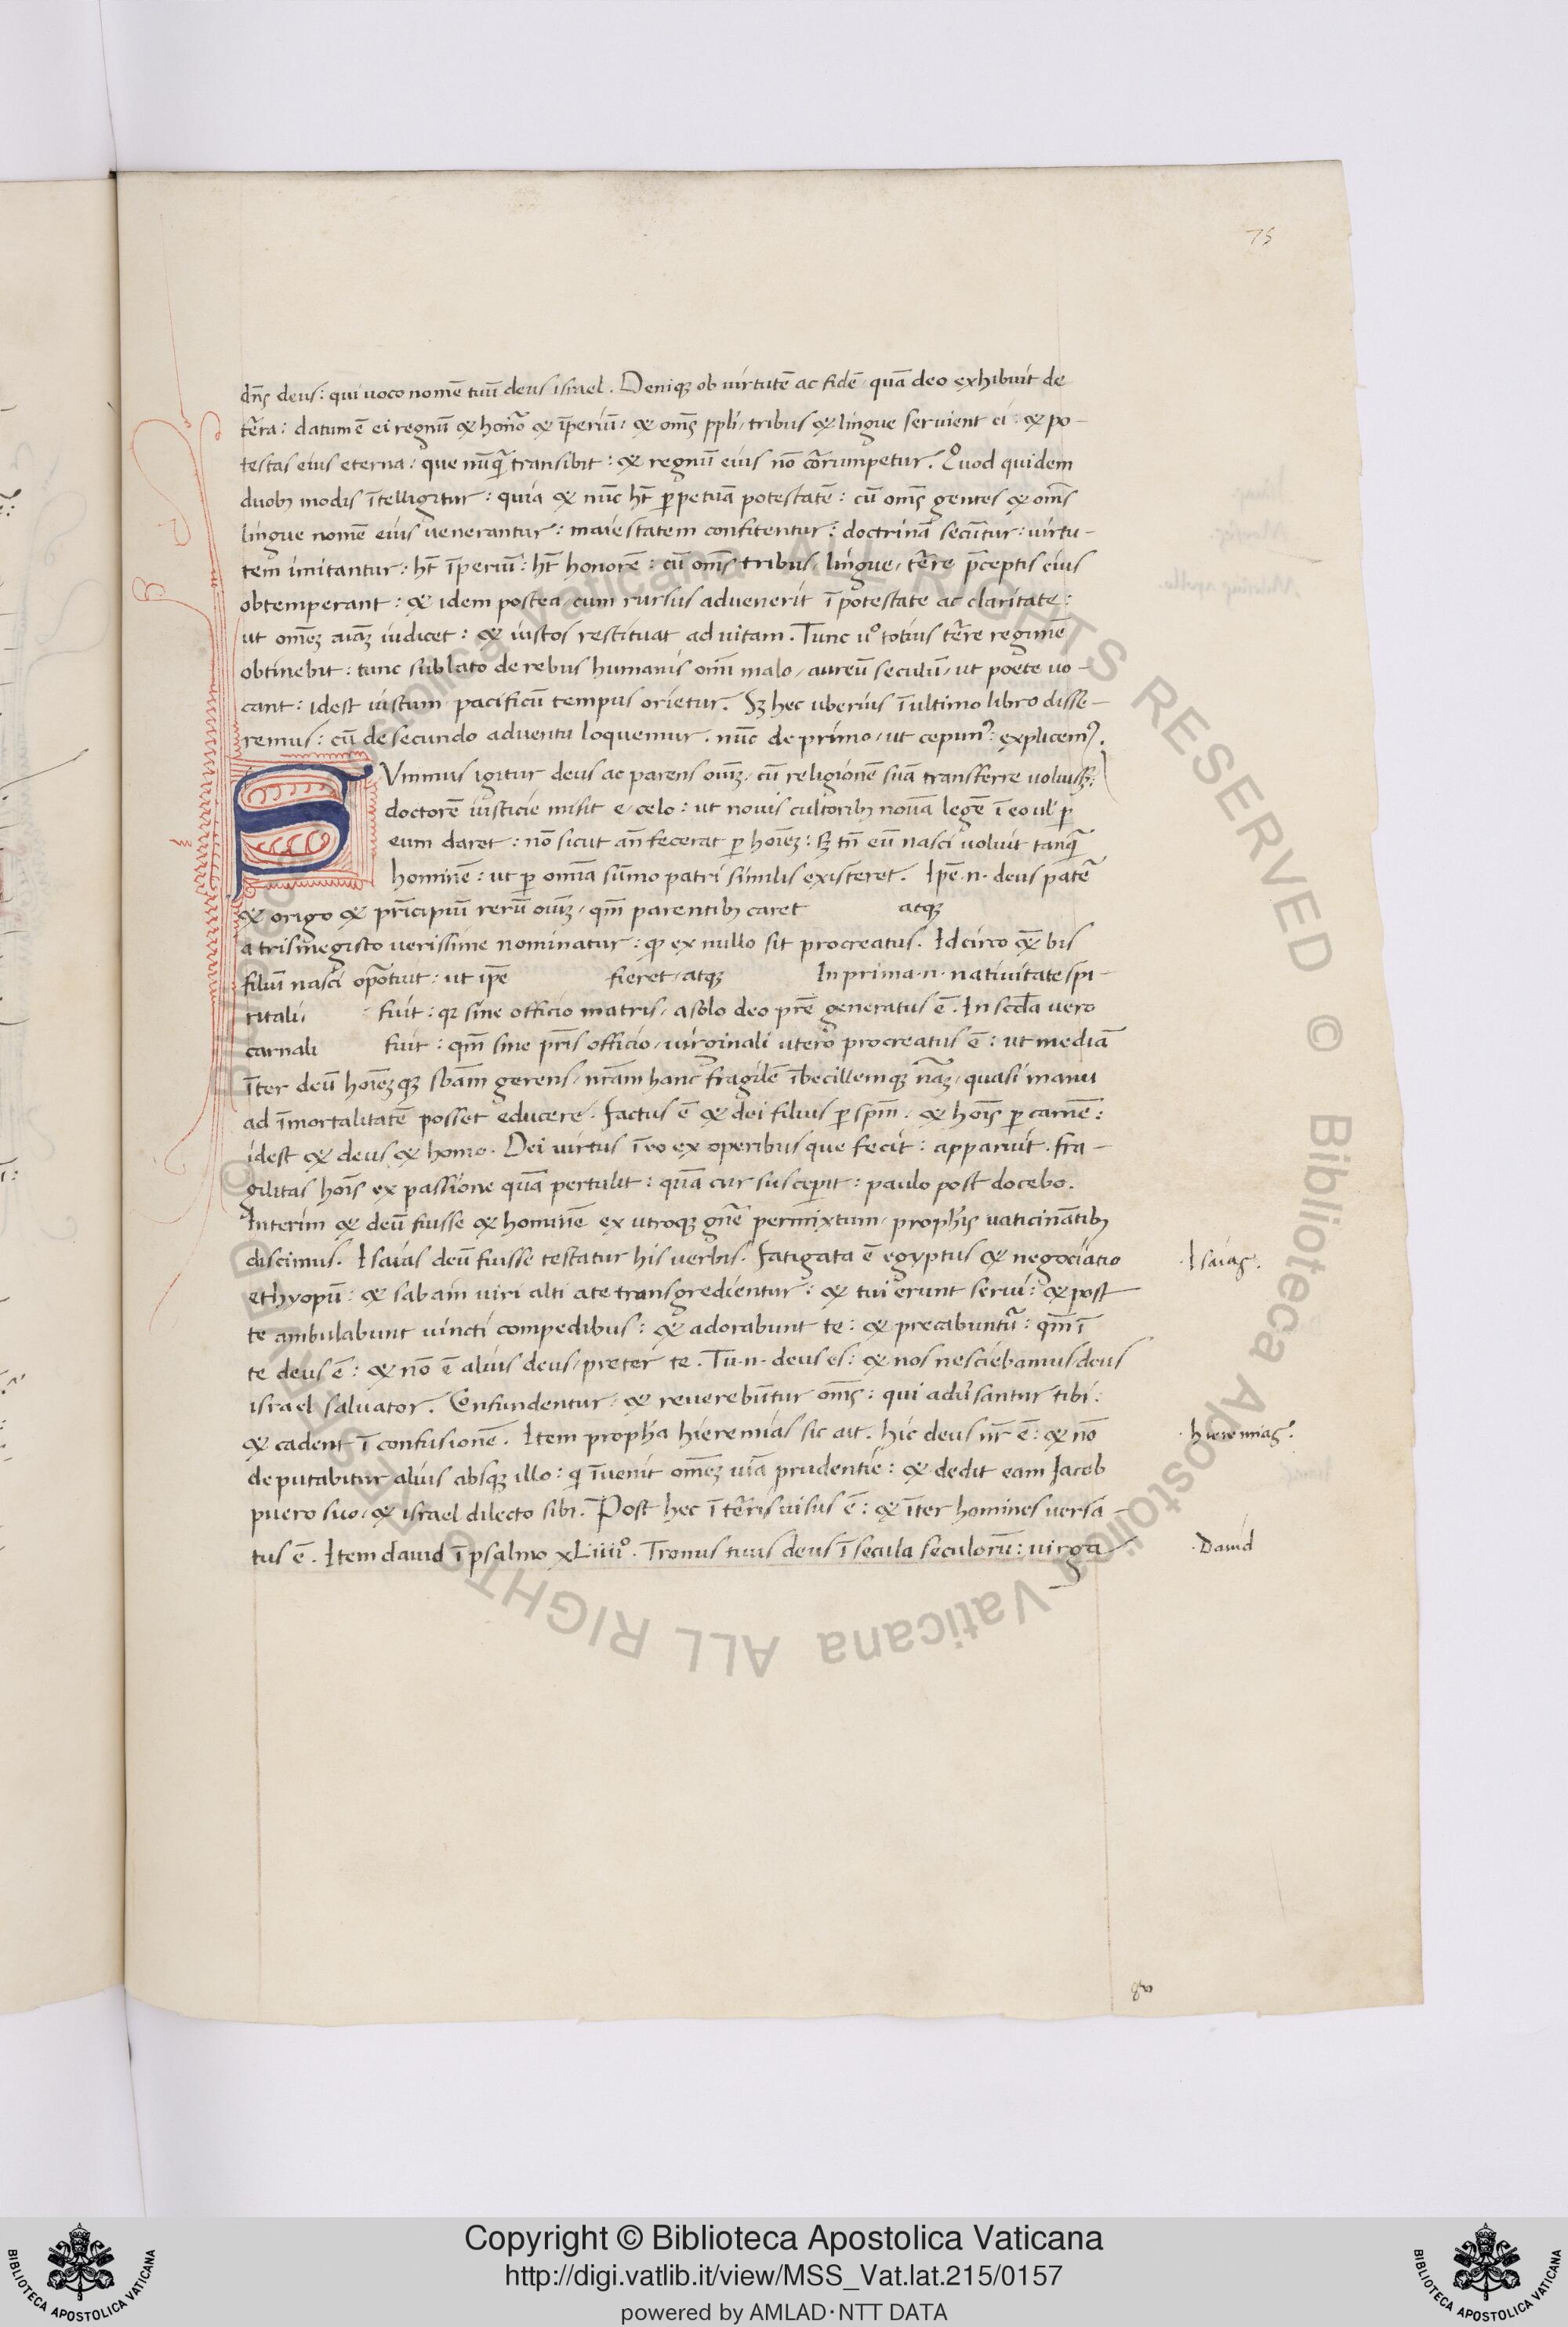 75
dn̄s deus: qui uoco nomē tuū deus israel. Deniqꝫ ob uirtutē ac fidē quā deo exhibuit de
tr̄a: datum ē ei regnū & honor̄ & īperiū: & om̄s ppli tribus & lingue seruient ei: & po-
testas eius eterna, que nūq̄ transibit: & regnū eius nō cōrumpetur. Quod quidem
duobꝫ modis ītelligitur: quia & nūc ht̄ ꝑpetuā potestatē: cū om̄s gentes & om̄s
lingue nomē eius uenerantur: maiestatem confitentur: doctrinā secūtur: uirtu-
tem imitantur: ht̄ īperiū: ht̄ honorē: cū om̄s tribus, lingue, tr̄re p̄ceptis eius
obtemperant: & idem postea cum rursus aduenerit ī potestate ac claritate:
ut om̄eꝫ aiāꝫ iudicet: & iustos restituat ad uitam. Tunc uº totius tr̄re regimē
obtinebit: tunc sublato de rebus humanis om̄i malo, aureū seculū, ut poete uo-
cant: idest iustum pacificū tempus orietur. Sꝫ hec uberius ī ultimo libro disse-
remus: cū de secundo aduentu loquemur. nūc de primo, ut cepimꝰ: explicemꝰ.
SVmmus igitur deus ac parens om̄iꝫ, cū religionē suā transferre uoluissꝫ:
doctorē iusticie misit e celo: ut nouis cultoribꝫ nouā legē ī eo ul' ꝑ
eum daret: nō sicut an̄ fecerat ꝑ hoīeꝫ: sꝫ tn̄ eū nasci uoluit tanq̄
hominē: ut ꝑ omīa sūmo patri similis existeret. Ip̄e .n. deus pater̄
& origo & prīcipiū rerū om̄iꝫ, qm̄ parentibꝫ caret atqꝫ
a trismegisto uerissime nominatur: ꝙ ex nullo sit procreatus. Idcirco & bis
filiū nasci oportuit: ut ip̄e fieret, atqꝫ In prima .n. natiuitate spi-
ritali, fuit: qꝛ sine officio matris, a solo deo pr̄e generatus ē. In sc̄da uero
carnali fuit: qm̄ sine pr̄is officio, uirginali utero procreatus ē: ut mediā
īter deū hoīeꝫqꝫ sb̄am gerens, nr̄am hanc fragilē ībecillemqꝫ nāꝫ, quasi manu
ad īmortalitatē posset educere. Factus ē & dei filius ꝑ spm̄: & hoīs ꝑ carnē:
idest & deus & homo. Dei uirtus ī eo ex operibus que fecit: apparuit. fra-
gilitas hoīs ex passione quā pertulit: quā cur susceperit: paulo post docebo.
Interim & deū fuisse & hominē ex utroqꝫ gn̄e permixtum, proph̄is uaticinātibꝫ
discimus. Isaias deū fuisse testatur his uerbis. Fatigata ē egyptus & negociatio
ethyopū: & sabaim uiri alti ad te transgredientur: & tui erunt serui: & post
te ambulabunt uincti compedibus: & adorabunt te: & precabuntur̄: qm̄ ī
te deus ē: & nō ē alius deus, preter te. Tu .n. deus es: & nos nesciebamus, deus
israel saluator. Cōnfundentur, & reuerebūtur om̄s: qui adu'santur tibi:
& cadent ī confusionē. Item proph̄a hieremias sic ait. hic deus nr̄ ē: & nō
deputabitur alius absqꝫ illo: qi īuenit om̄eꝫ uiā prudentie: & dedit eam Jacob
puero suo, & israel dilecto sibi. Post hec ī tr̄ris uisus ē: & īter homines uersa-
tus ē. Item dauid ī psalmo xLiiiiº. Tronus tuus deus ī secula seculorū: uirga
.Isaias.
.hieremias.
.Dauid
Copyright © Biblioteca Apostolica Vaticana
http://digi.vatlib.it/view/MSS_Vat.lat.215/0157
powered by AMLAD·NTT DATA
BIBLIOTECA APOSTOLICA VATICANA
BIBLIOTECA APOSTOLICA VATICANA
© Biblioteca Apostolica Vaticana ALL RIGHTS RESERVED © Biblioteca Apostolica Vaticana ALL RIGHTS RESERVED